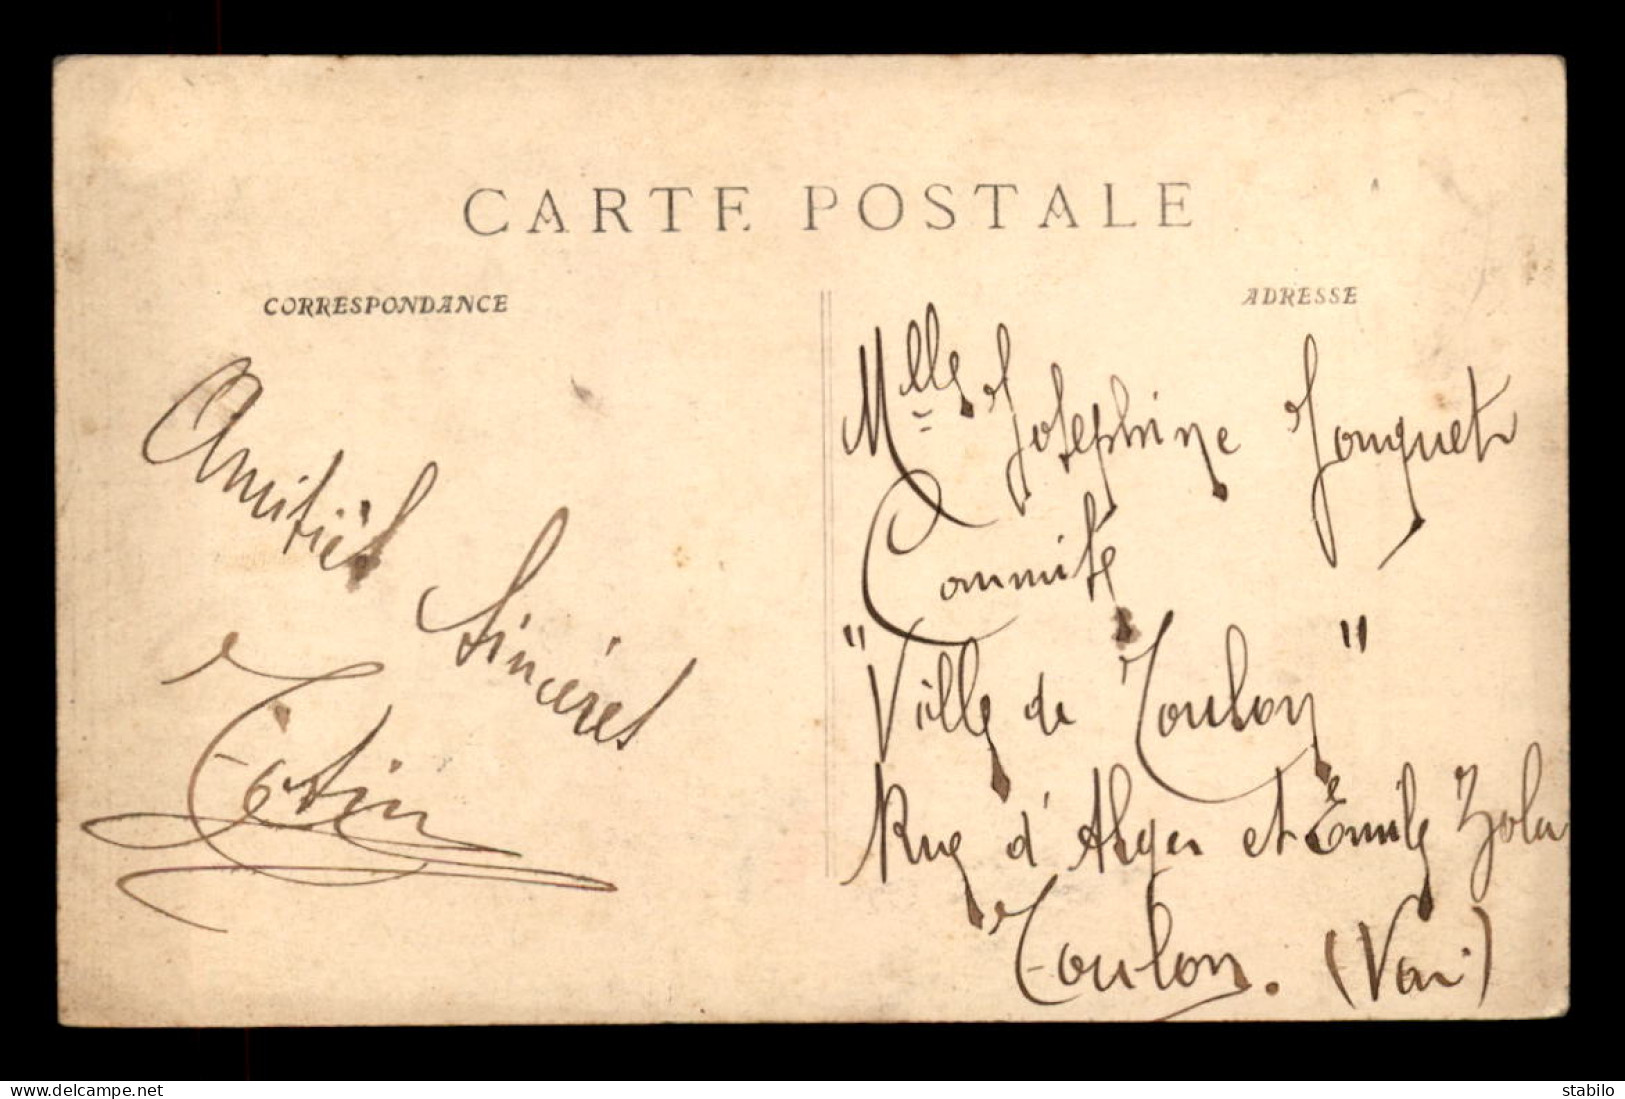 CARTE POSTALE
CORRESPONDANCE
ADRESSE
Amitiés
Sincères
Mlle Josephine Jouquet
Commité
"Ville de Toulon"
Rue d'Alger et Emile Zola
Toulon. (Var)
www.delcampe.net
stabilo